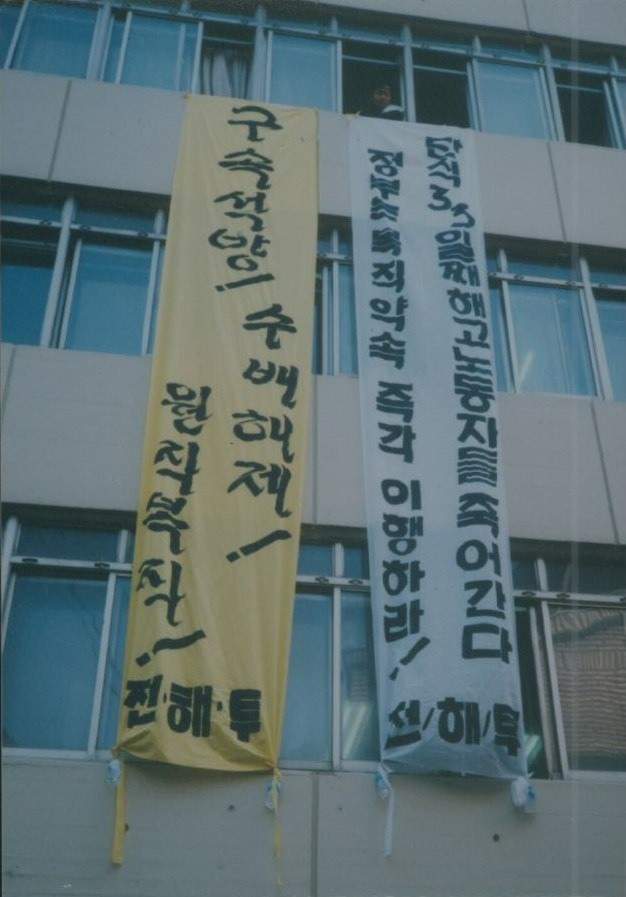 구속석방!
수배해제!
원직복직!
전·해·투
단식33일째 해고노동자들 죽어간다
정부는 복직약속 즉각 이행하라!
전/해/투